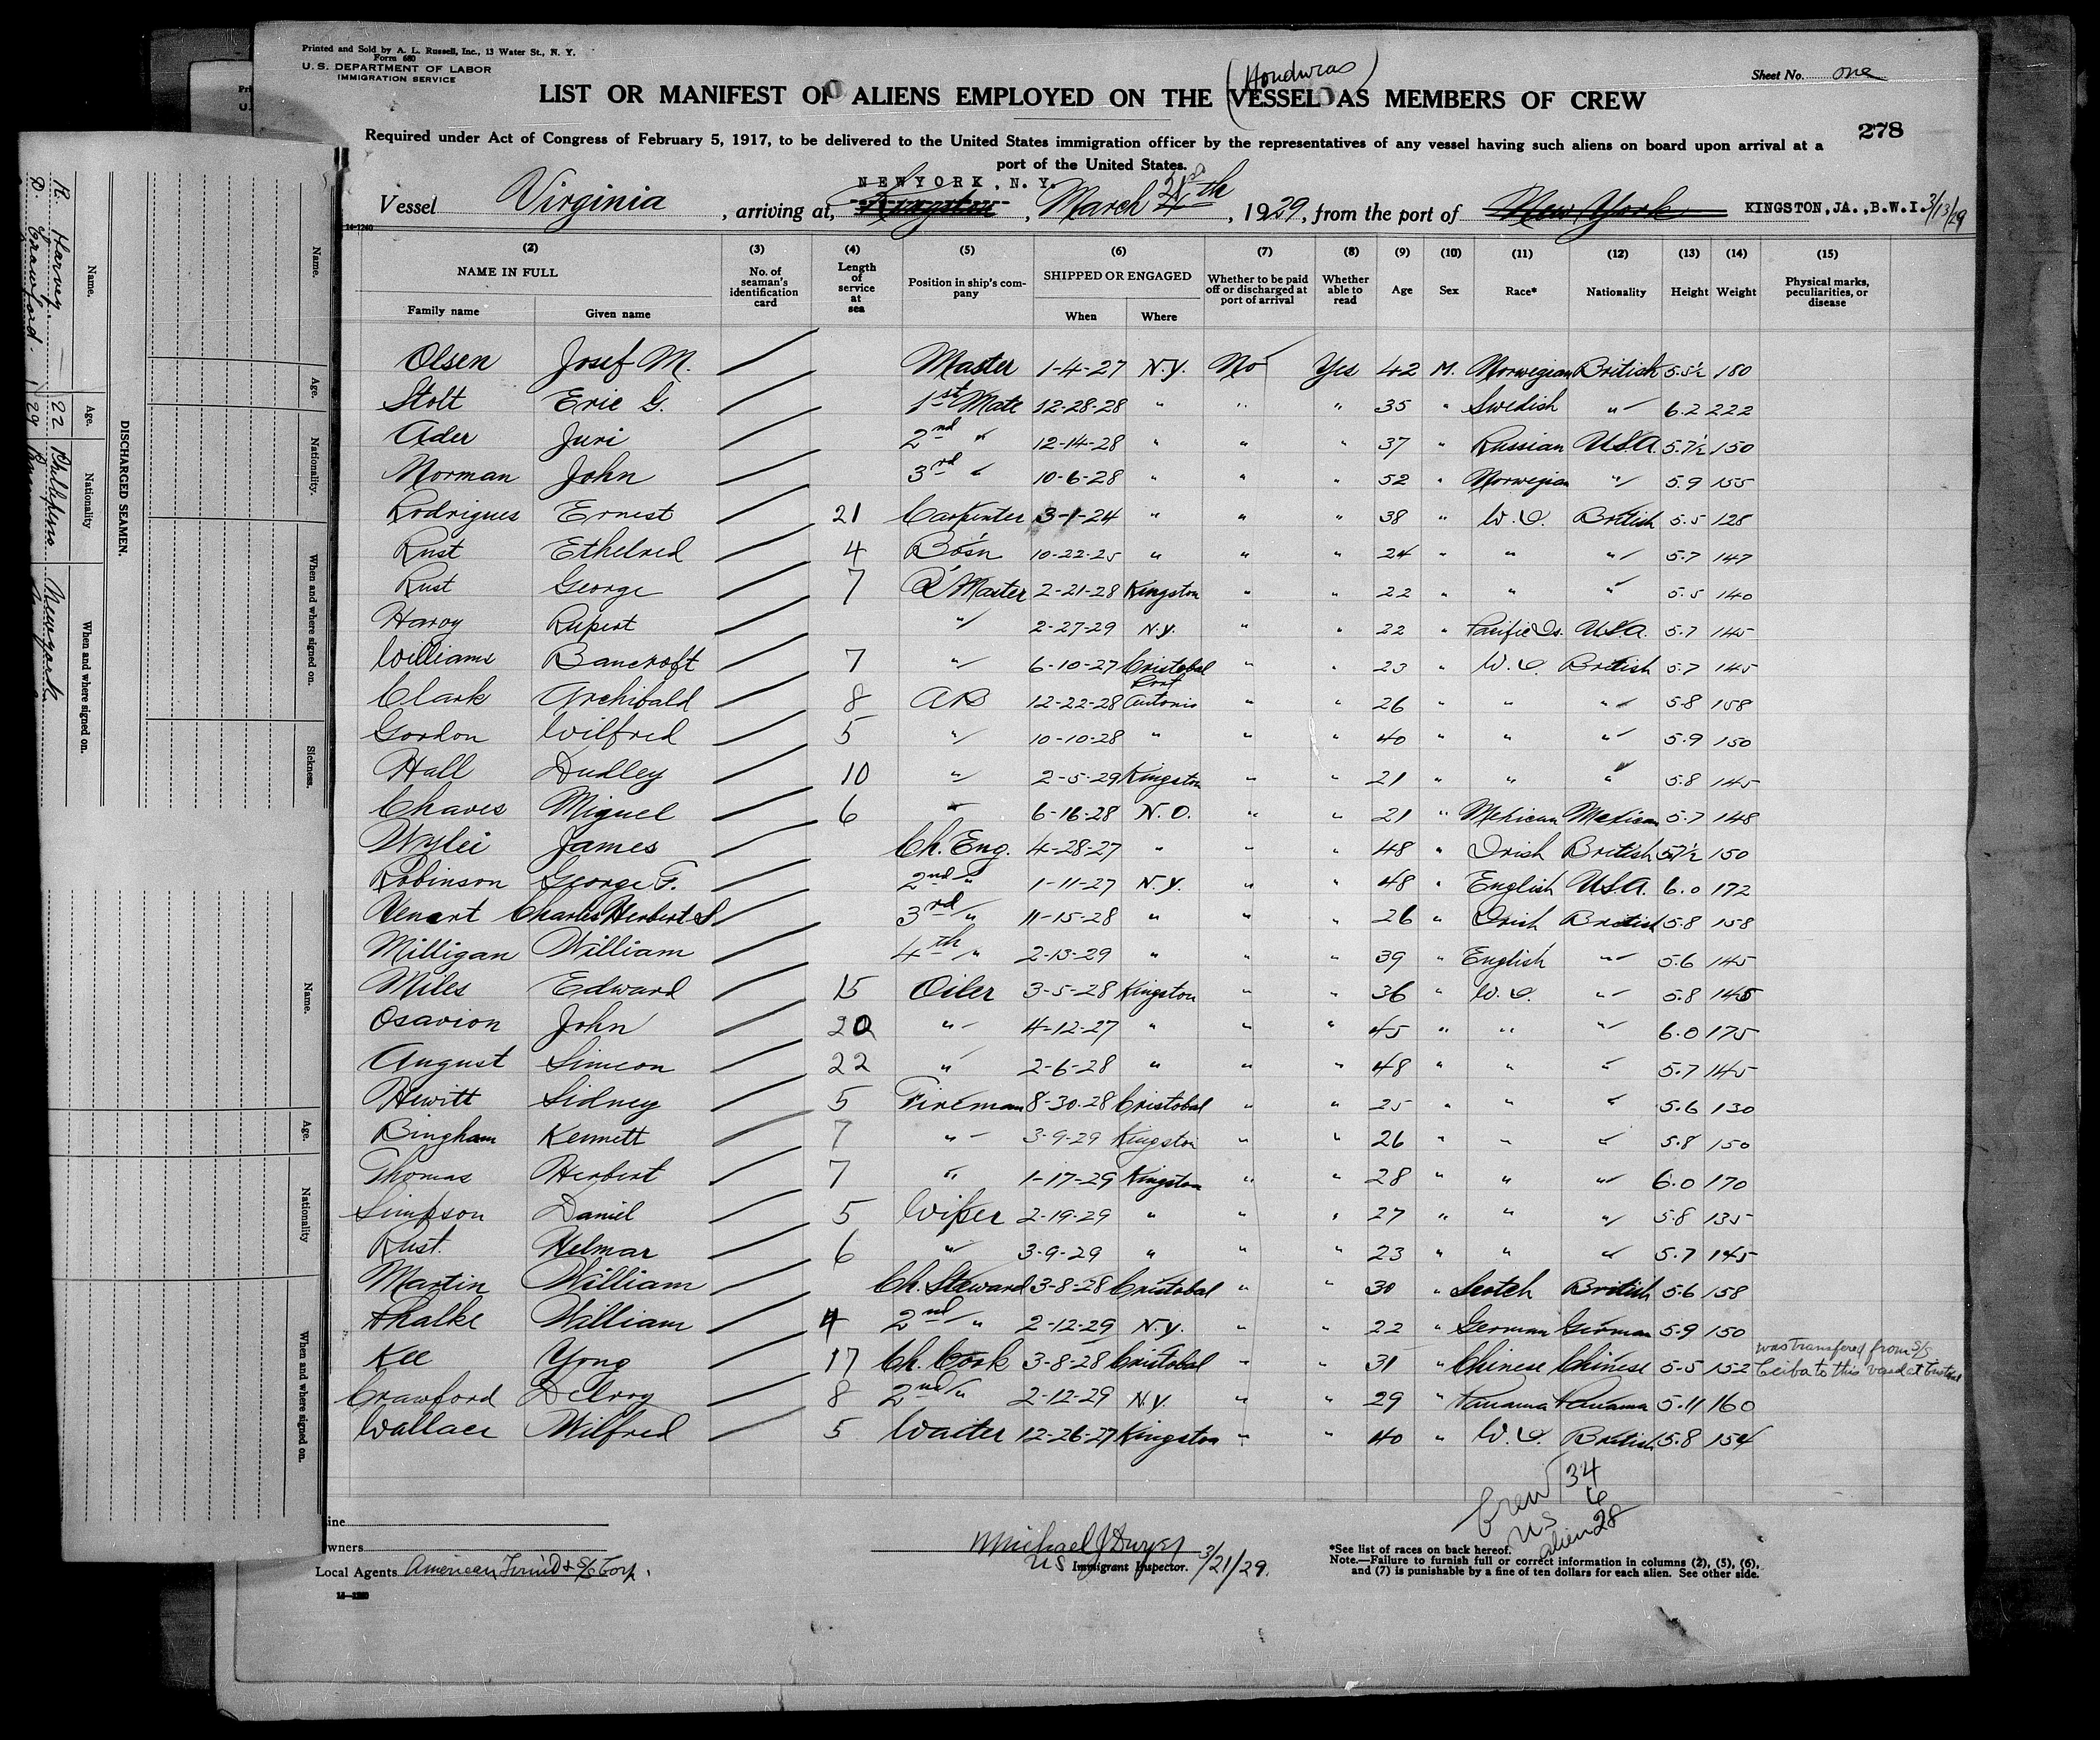 Printed and Sold by A. L. Russell, Inc., 13 Water St., N. Y.
Form 680
U. S. DEPARTMENT OF LABOR
IMMIGRATION SERVICE
Sheet No. one
(Honduras)
LIST OR MANIFEST OF ALIENS EMPLOYED ON THE VESSEL AS MEMBERS OF CREW
278
Required under Act of Congress of February 5, 1917, to be delivered to the United States immigration officer by the representatives of any vessel having such aliens on board upon arrival at a
port of the United States.
NEW YORK, N. Y.
Vessel Virginia, arriving at, Kingston, March 21st, 1929, from the port of New York KINGSTON, JA., B.W.I. 3/13/29
14-1240
(2) (3) (4) (5) (6) (7) (8) (9) (10) (11) (12) (13) (14) (15)
NAME IN FULL No. of seaman's identification card Length of service at sea Position in ship's company SHIPPED OR ENGAGED Whether to be paid off or discharged at port of arrival Whether able to read Age Sex Race* Nationality Height Weight Physical marks, peculiarities, or disease
Family name Given name When Where
Olsen Josef M. Master 1-4-27 N.Y. No Yes 42 M. Norwegian British 5.5½ 180
Stolt Eric G. 1st Mate 12-28-28 " " " 35 " Swedish " 6.2 222
Ader Juri 2nd " 12-14-28 " " " 37 " Russian U.S.A. 5.7½ 150
Norman John 3rd " 10-6-28 " " " 52 " Norwegian " 5.9 155
Rodrigues Ernest 21 Carpenter 3-1-24 " " " 38 " W.I. British 5.5 128
Rust Ethelred 4 Bo'sn 10-22-25 " " " 24 " " " 5.7 147
Rust George 7 Q'Master 2-21-28 Kingston " " 22 " " " 5.5 140
Harvy Rupert " 2-27-29 N.Y. " " 22 " Pacific Is. U.S.A. 5.7 145
Williams Bancroft 7 " 6-10-27 Cristobal " " 23 " W.I. British 5.7 145
Clark Archibald 8 AB 12-22-28 Port Antonio " " 26 " " " 5.8 158
Gordon Wilfred 5 " 10-10-28 " " " 40 " " " 5.9 150
Hall Dudley 10 " 2-5-29 Kingston " " 21 " " " 5.8 145
Chaves Miguel 6 " 6-16-28 N.O. " " 21 " Mexican Mexican 5.7 148
Wylei James Ch. Eng. 4-28-27 " " " 48 " Irish British 5.7½ 150
Robinson George F. 2nd " 1-11-27 N.Y. " " 48 " English U.S.A. 6.0 172
Charles Herbert 3rd " 11-15-28 " " " 26 " Irish British 5.8 158
Milligan William 4th " 2-13-29 " " " 39 " English " 5.6 145
Miles Edward 15 Oiler 3-5-28 Kingston " " 36 " W.I. " 5.8 145
Osavion John 20 " 4-12-27 " " " 45 " " " 6.0 175
August Simeon 22 " 2-6-28 " " " 48 " " " 5.7 145
Hewitt Sidney 5 Fireman 8-30-28 Cristobal " " 25 " " " 5.6 130
Bingham Kennett 7 " 3-9-29 Kingston " " 26 " " " 5.8 150
Thomas Herbert 7 " 1-17-29 Kingston " " 28 " " " 6.0 170
Simpson Daniel 5 Wiper 2-19-29 " " " 27 " " " 5.8 135
Rust. Helmar 6 " 3-9-29 " " " 23 " " " 5.7 145
Martin William Ch. Steward 3-8-28 Cristobal " " 30 " Scotch British 5.6 158
William 4 2nd " 2-12-29 N.Y. " " 22 " German German 5.9 150
Kee Yong 17 Ch. Cook 3-8-28 Cristobal " " 31 " Chinese Chinese 5.5 152 was transfered from S/S Ceiba to this vessel at Cristobal
Crawford Delroy 8 2nd " 2-12-29 N.Y. " " 29 " Panama Panama 5.11 160
Wallace Wilfred 5 Waiter 12-26-27 Kingston " " 40 " W.I. British 5.8 154
Crew 34
US 6
alien 28
Line
Owners
Local Agents American Fruit & S/S Corp.
Michael J Dwyer 3/21/29.
US Immigrant Inspector.
*See list of races on back hereof.
Note.—Failure to furnish full or correct information in columns (2), (5), (6),
and (7) is punishable by a fine of ten dollars for each alien. See other side.
14-1240
DISCHARGED SEAMEN.
Name. Age. Nationality When and where signed on.
R. Harvey. 22 Phillipino New York
D. Crawford. 29
Name. Age. Nationality. When and where signed on. Sickness.
Name. Age. Nationality When and where signed on.